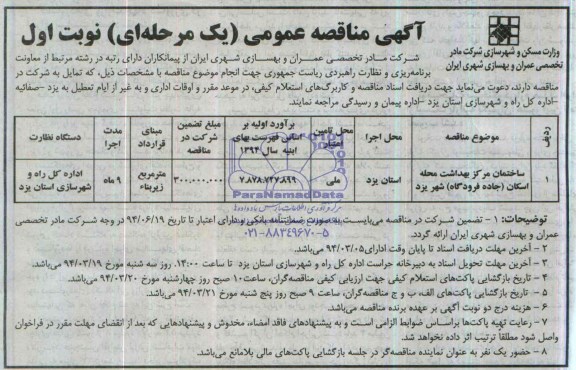 آگهی مناقصه عمومی (یک مرحله‌ای) نوبت اول
وزارت مسکن و شهرسازی شرکت مادر
تخصصی عمران و بهسازی شهری ایران
شرکت مادر تخصصی عمران و بهسازی شهری ایران از پیمانکاران دارای رتبه در رشته مرتبط از معاونت
برنامه‌ریزی و نظارت راهبردی ریاست جمهوری جهت انجام موضوع مناقصه با مشخصات ذیل، که تمایل به شرکت در
مناقصه دارند، دعوت می‌نماید جهت دریافت اسناد مناقصه و کاربرگ‌های استعلام کیفی، در موعد مقرر و اوقات اداری و به غیر از ایام تعطیل به یزد -صفائیه
-اداره کل راه و شهرسازی استان یزد -اداره پیمان و رسیدگی مراجعه نمایند.
ردیف | موضوع مناقصه | محل اجرا | محل تامین اعتبار | برآورد اولیه بر اساس فهرست بهای ابنیه سال ۱۳۹۴ | مبلغ تضمین شرکت در مناقصه | مبنای قرارداد | مدت اجرا | دستگاه نظارت
۱ | ساختمان مرکز بهداشت محله اسکان (جاده فرودگاه) شهر یزد | استان یزد | ملی | ۷.۸۷۸.۷۴۷.۸۹۹ | ۳۰۰.۰۰۰.۰۰۰ | مترمربع زیربناء | ۹ ماه | اداره کل راه و شهرسازی استان یزد
ParsNamadData
۰۲۱-۸۸۳۴۹۶۷۰-۵
توضیحات: ۱ - تضمین شرکت در مناقصه می‌بایست به صورت ضمانتنامه بانکی و دارای اعتبار تا تاریخ ۹۴/۰۶/۱۹ در وجه شرکت مادر تخصصی
عمران و بهسازی شهری ایران ارائه گردد.
۲ - آخرین مهلت دریافت اسناد تا پایان وقت اداری ۹۴/۰۳/۰۵ می‌باشد.
۳ - آخرین مهلت تحویل اسناد به دبیرخانه حراست اداره کل راه و شهرسازی استان یزد تا ساعت ۱۴:۰۰ روز سه شنبه مورخ ۹۴/۰۳/۱۹ می‌باشد.
۴ - تاریخ بازگشایی پاکت‌های استعلام کیفی جهت ارزیابی کیفی مناقصه‌گران، ساعت ۱۰ صبح روز چهارشنبه مورخ ۹۴/۰۳/۲۰ می‌باشد.
۵ - تاریخ بازگشایی پاکت‌های الف، ب و ج مناقصه‌گران، ساعت ۹ صبح روز پنج شنبه مورخ ۹۴/۰۳/۲۱ می‌باشد.
۶ - هزینه درج دو نوبت آگهی بر عهده برنده مناقصه می‌باشد.
۷ - رعایت تهیه پاکت‌ها براساس ضوابط الزامی است و به پیشنهادهای فاقد امضاء، مخدوش و پیشنهادهایی که بعد از انقضای مهلت مقرر در فراخوان
واصل شود مطلقا ترتیب اثر داده نخواهد شد.
۸ - حضور یک نفر به عنوان نماینده مناقصه‌گر در جلسه بازگشایی پاکت‌های مالی بلامانع می‌باشد.